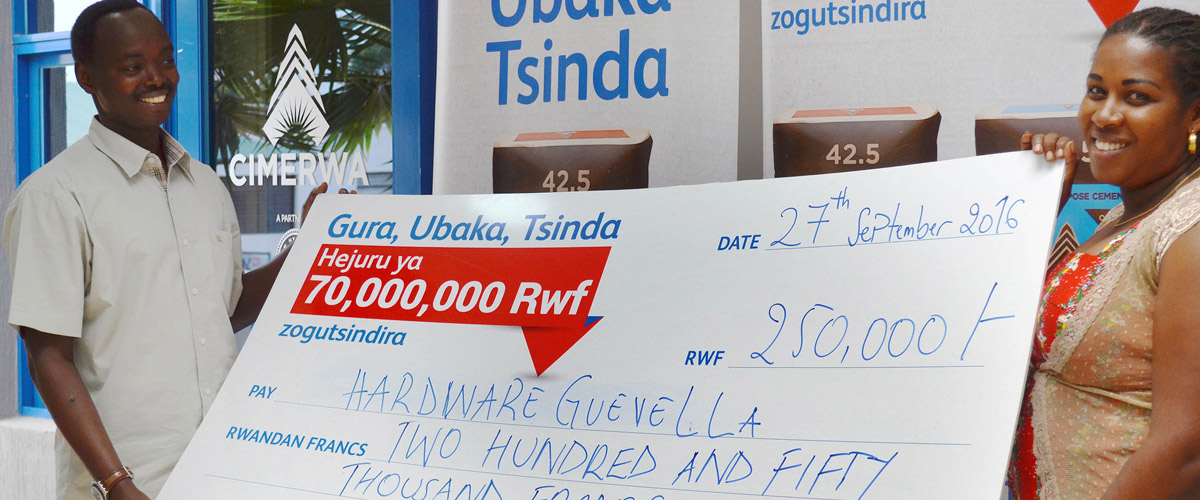 Ubaka
Tsinda
zogutsindira
42.5
42.5
CIMERWA
Gura, Ubaka, Tsinda
Hejuru ya
70,000,000 Rwf
zogutsindira
DATE 27th September 2016
RWF 250,000/-
PAY HARDWARE GUEVELLA
RWANDAN FRANCS TWO HUNDRED AND FIFTY
THOUSAND FRANCS